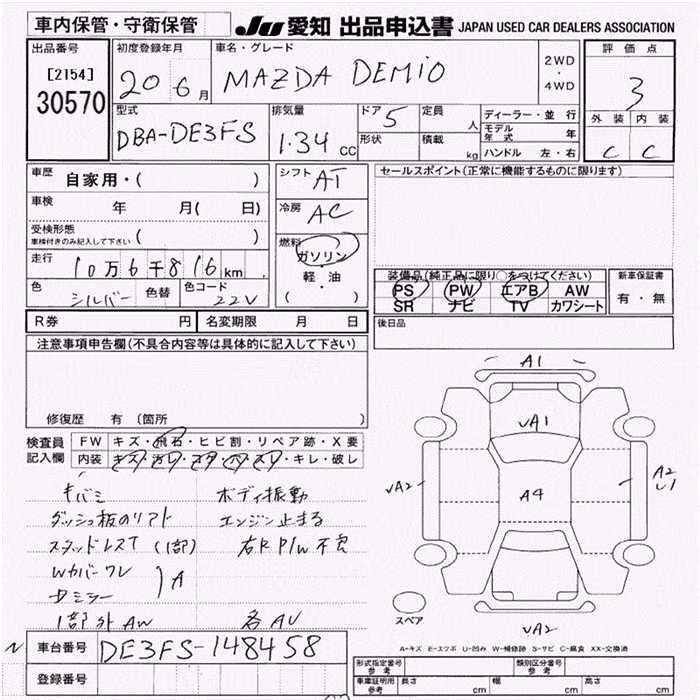 車内保管・守衛保管
JU 愛知 出品申込書 JAPAN USED CAR DEALERS ASSOCIATION
出品番号
[2154]
30570
初度登録年月
20 6月
車名・グレード
MAZDA DEMIO
2WD
・
4WD
評価点
3
外装 内装
C C
型式
DBA-DE3FS
排気量
1.34 CC
ドア 5
形状
定員 人
積載 kg
ディーラー・並行
モデル年式 年
ハンドル 左・右
車歴 自家用・( )
車検 年 月( 日)
受検形態
車検付きのみ記入して下さい ( )
走行 10万6千816km
色 シルバー 色替
色コード 22V
シフト AT
冷房 AC
燃料
ガソリン
・
軽・油
( )
セールスポイント(正常に機能するものに限ります)
装備品(純正品に限り○をつけてください)
PS PW エアB AW
SR ナビ TV カワシート
新車保証書
有・無
後日品
R券 円 名変期限 月 日
注意事項申告欄(不具合内容等は具体的に記入して下さい)
修復歴 有 〔箇所 〕
検査員記入欄
FW キズ・飛石・ヒビ割・リペア跡・X要
内装 キズ・ヨゴレ・コゲ・ハゲ・スレ・キレ・破レ
キバミ ボディ振動
ダッシュ板のリフト エンジン止まる
スタッドレスT (1部) 右R P/W不良
Wカバーワレ
ミラー A
1部外AW 各AU
A1
VA1
VA2
A4
A2
U1
VA2
スペア
A-キズ E-エクボ U-凹み W-補修跡 S-サビ C-腐食 XX-交換済
N 車台番号 DE3FS-148458
登録番号
形式指定番号 参考
類別区分番号 参考
車庫証明用 参考 長さ cm 幅 cm 高さ cm